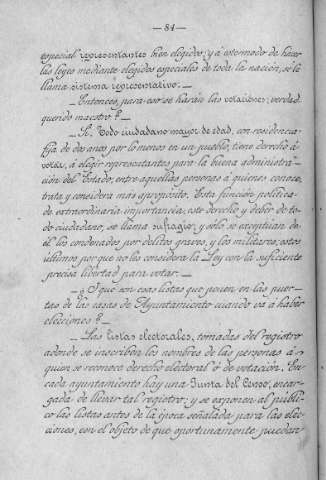 — 84 —
especial representantes bien elegidos; y á este modo de hacer
las leyes mediante elegidos especiales de toda la nación, se le
llama sistema representativo. —
— Entonces, para eso se harán las votaciones, ¿verdad,
querido maestro? —
— Sí. Todo ciudadano mayor de edad, con residencia
fija de dos años por lo menos en un pueblo, tiene derecho á
votar, á elegir representantes para la buena administra-
ción del Estado, entre aquellas personas á quienes conoce,
trata y considera más apropósito. Esta función política
de extraordinaria importancia, este derecho y deber de to-
do ciudadano, se llama sufragio, y sólo se exceptúan de
él los condenados por delitos graves, y los militares; estos
últimos por que no les considera la Ley con la suficiente
precisa libertad para votar. —
— ¿Y qué son esas listas que ponen en las puer-
tas de las casas de Ayuntamiento cuando va á haber
elecciones? —
— Las listas electorales, tomadas del registro
adonde se inscriben los nombres de las personas á
quien se reconoce derecho electoral ó de votación. En
cada ayuntamiento hay una Junta del Censo, encar-
gada de llevar tal registro; y se exponen al públi-
co las listas antes de la época señalada para las elec-
ciones, con el objeto de que oportunamente puedan